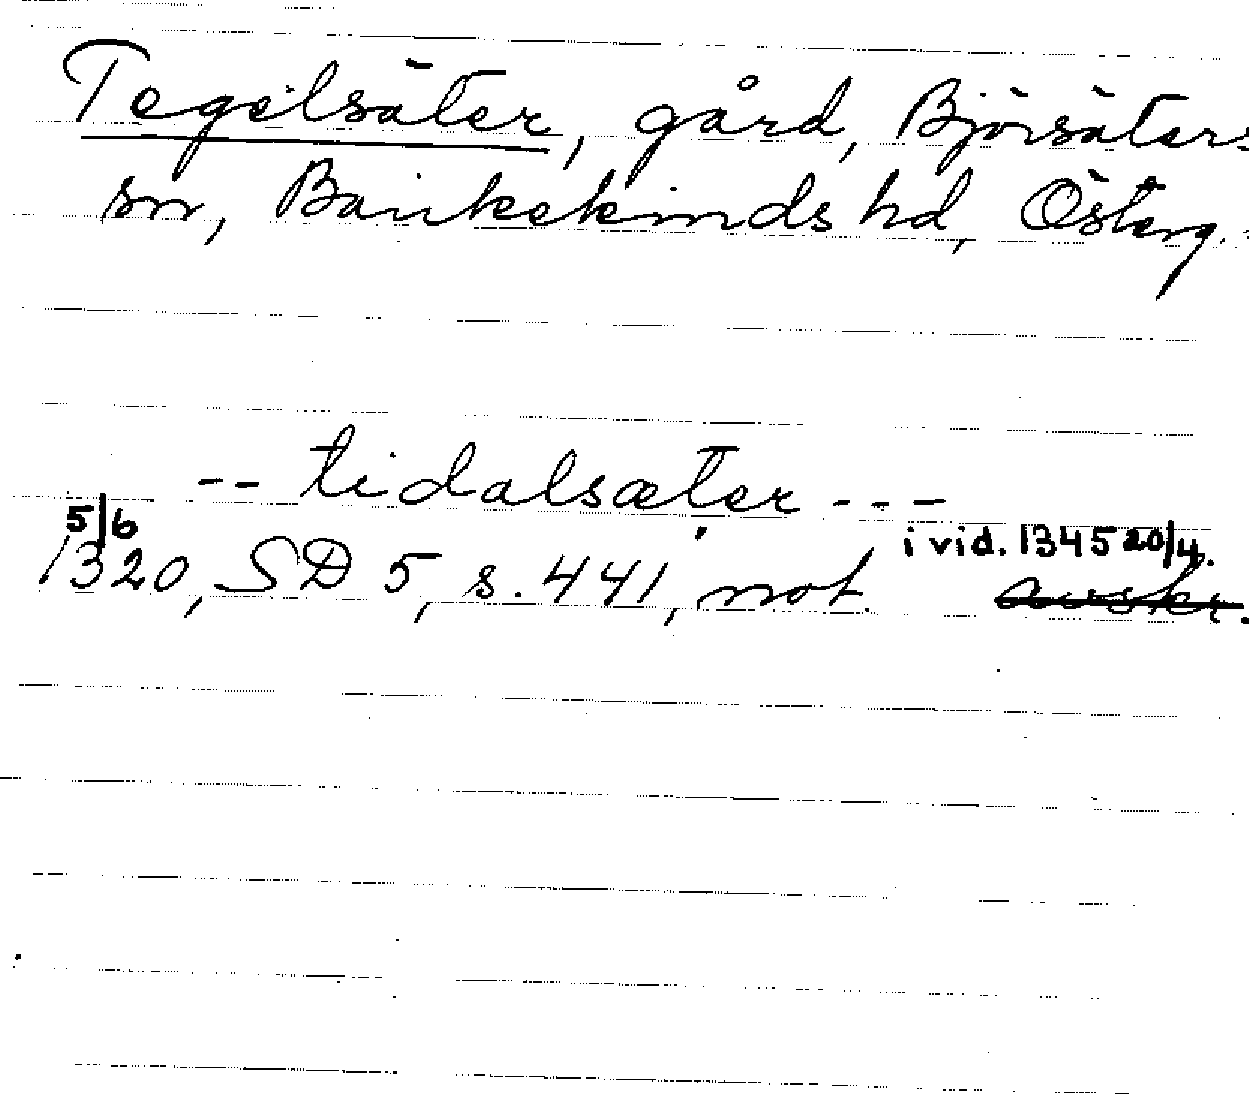 Tegelsäter, gård, Björsäters
sn, Bankekinds hd, Österg.
-- tidalsæter ---
5/6
1320, SD 5, s. 441, not. i vid. 1345 20/4.
avskr.